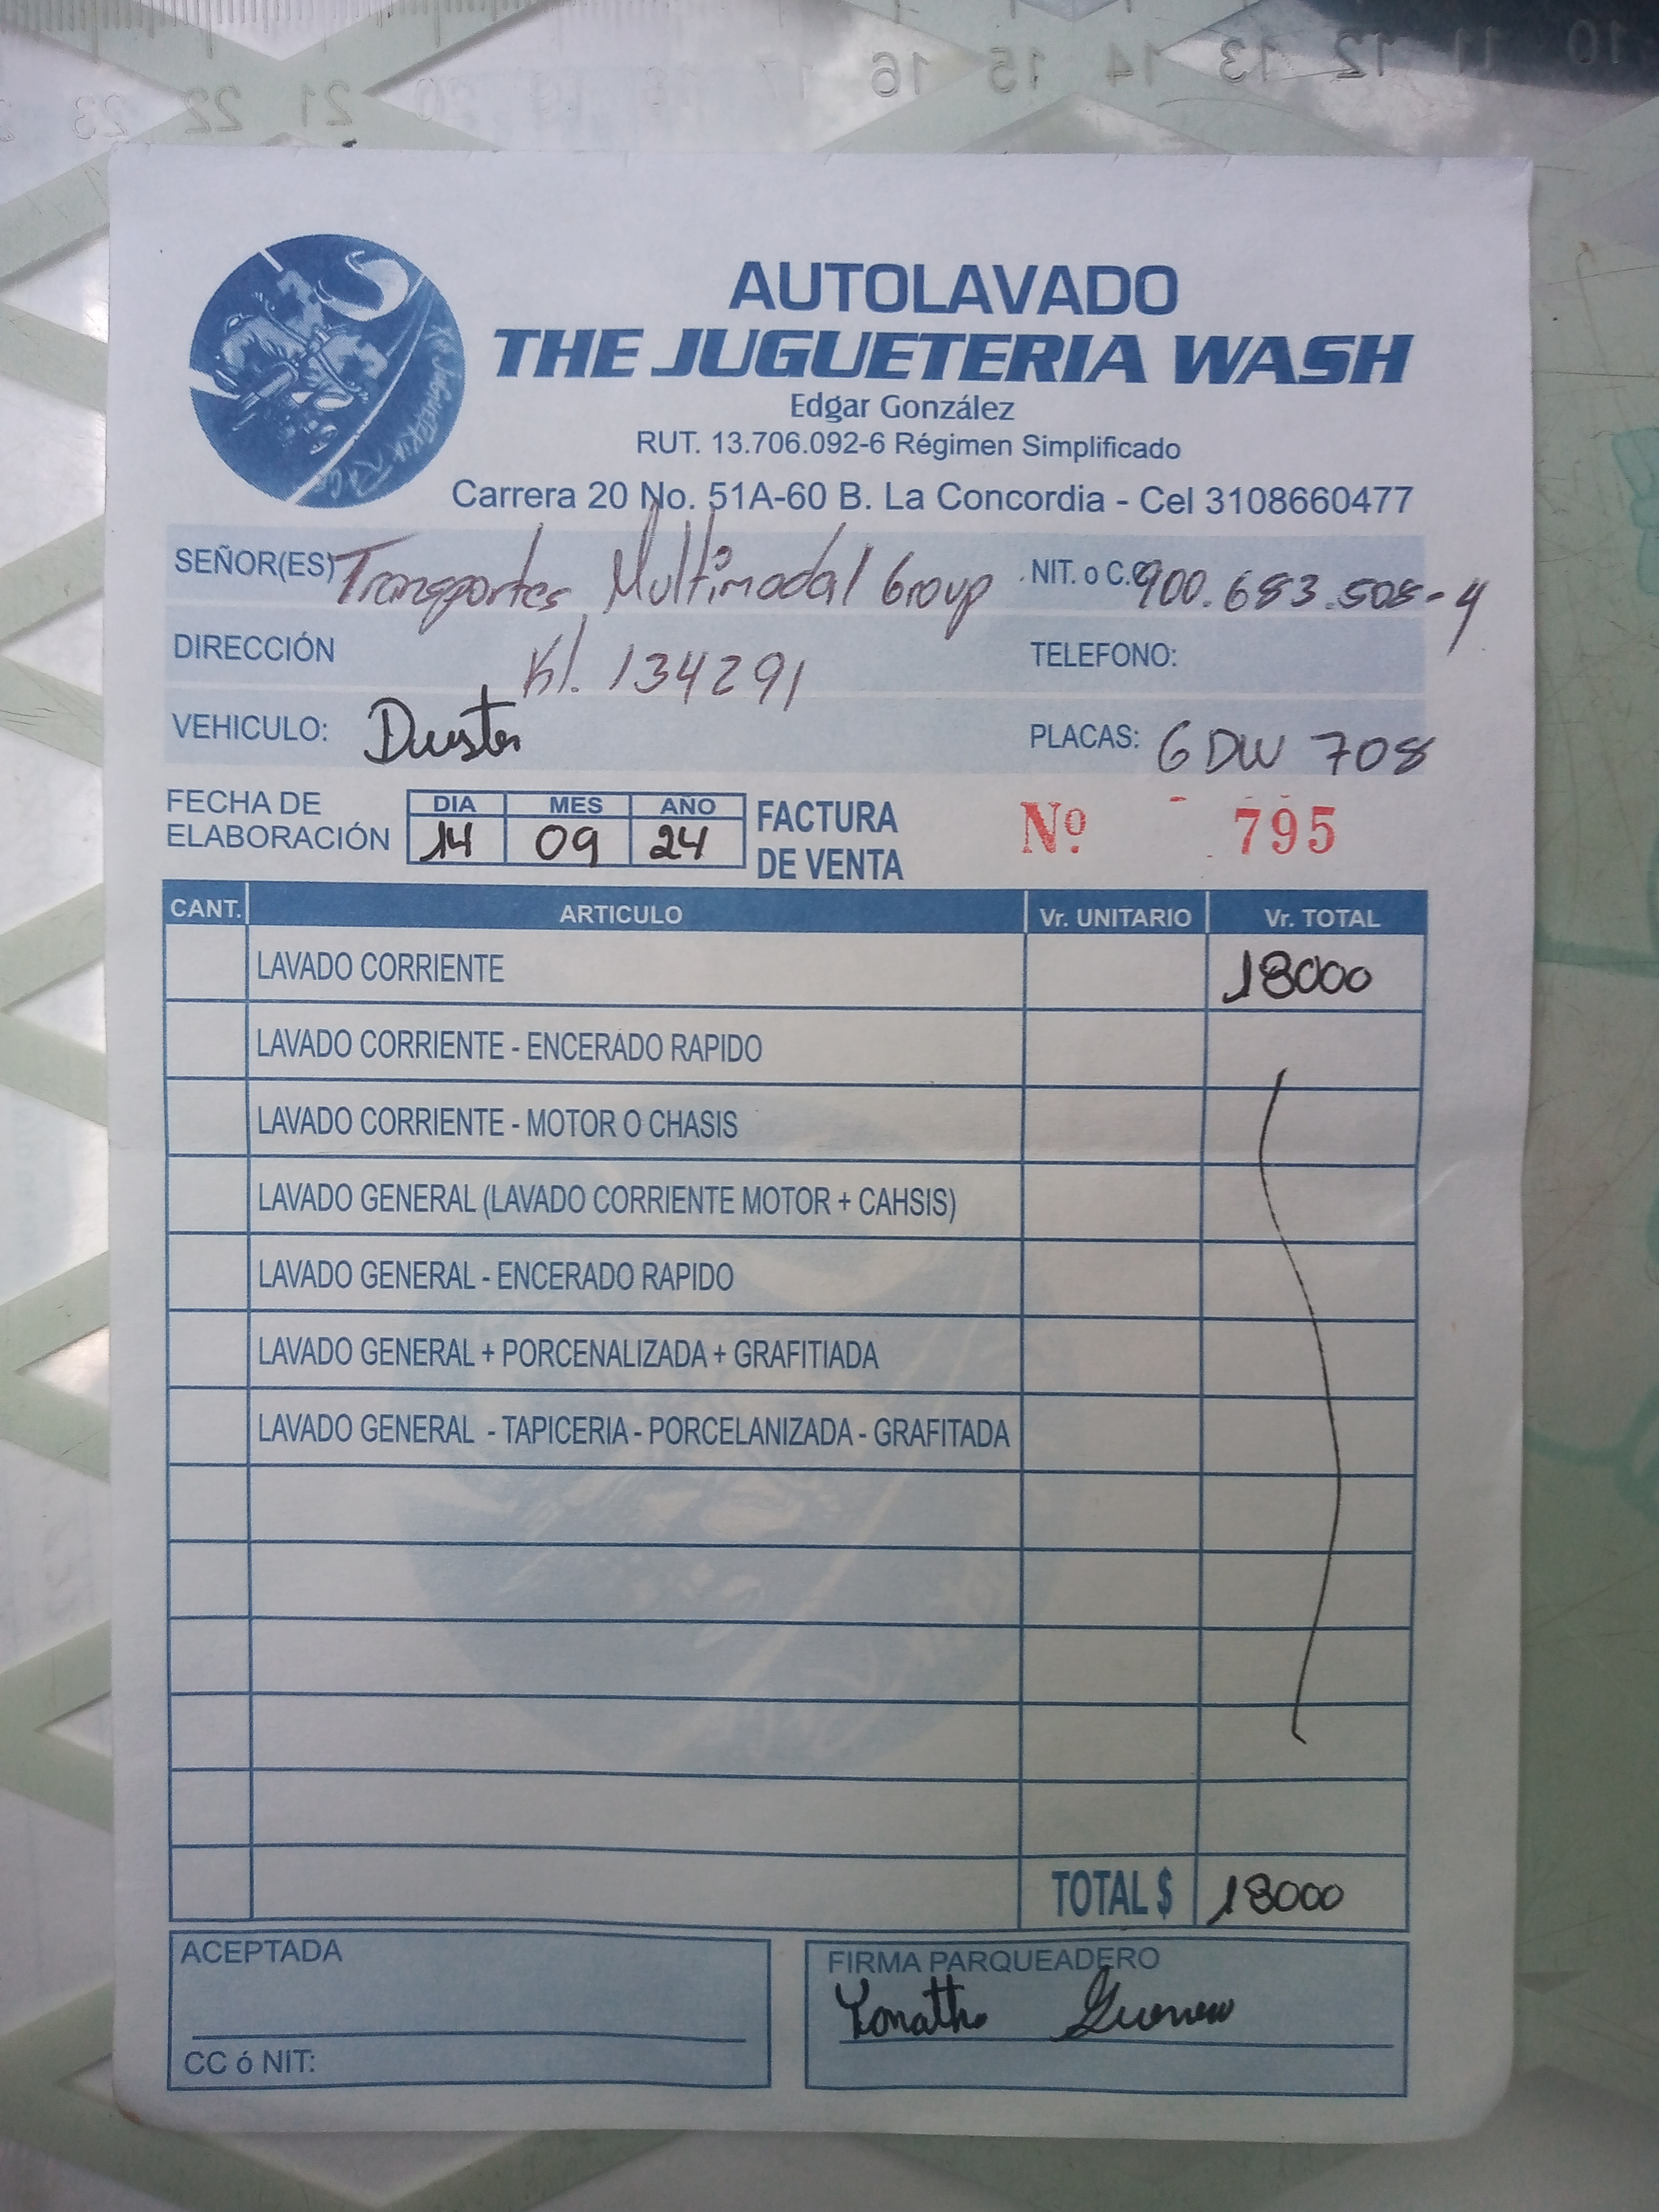 10 11 12 13 14 15 16 17 18 19 20 21 22 23
AUTOLAVADO
THE JUGUETERIA WASH
Edgar González
RUT. 13.706.092-6 Régimen Simplificado
Carrera 20 No. 51A-60 B. La Concordia - Cel 3108660477
SEÑOR(ES) Transportes Multimodal Group NIT. o C.C. 900.683.508-4
DIRECCIÓN Kl. 134291 TELEFONO:
VEHICULO: Duster PLACAS: GDW 708
FECHA DE ELABORACIÓN
DIA MES AÑO
14 09 24
FACTURA DE VENTA Nº 795
CANT. ARTICULO Vr. UNITARIO Vr. TOTAL
LAVADO CORRIENTE 18000
LAVADO CORRIENTE - ENCERADO RAPIDO
LAVADO CORRIENTE - MOTOR O CHASIS
LAVADO GENERAL (LAVADO CORRIENTE MOTOR + CAHSIS)
LAVADO GENERAL - ENCERADO RAPIDO
LAVADO GENERAL + PORCENALIZADA + GRAFITIADA
LAVADO GENERAL - TAPICERIA - PORCELANIZADA - GRAFITADA
TOTAL $ 18000
ACEPTADA
CC ó NIT:
FIRMA PARQUEADERO